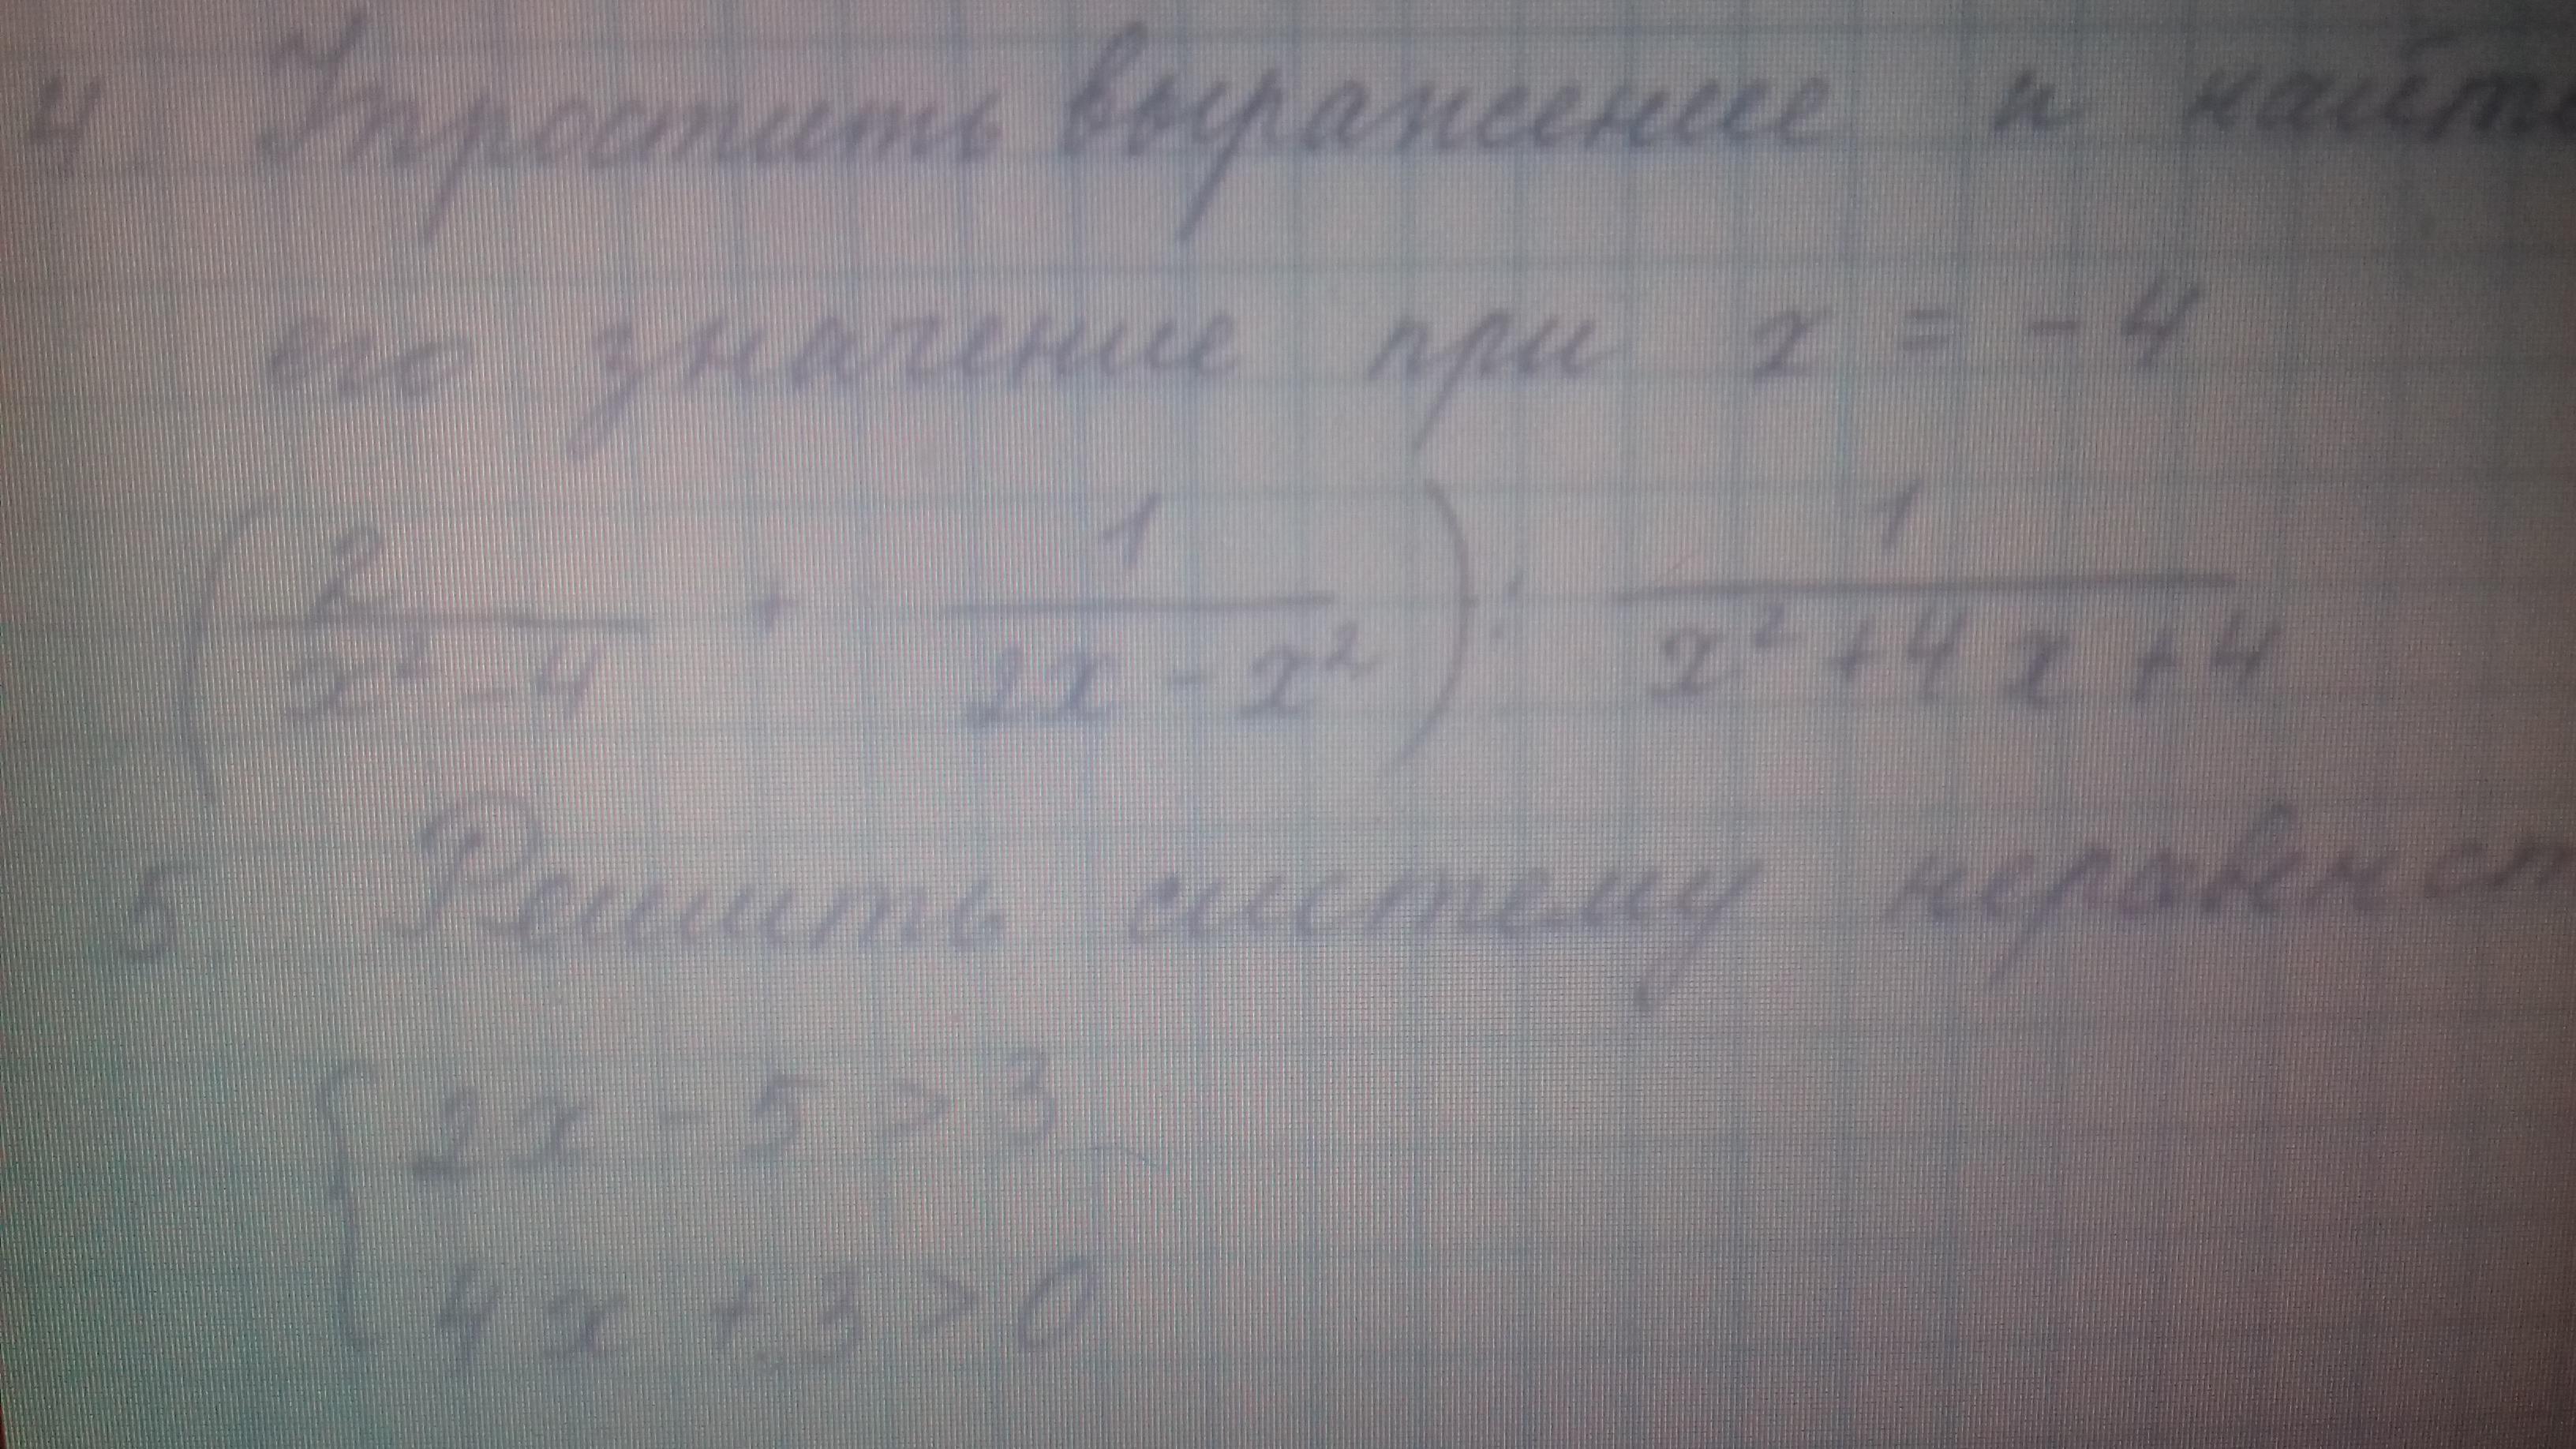 4. Упростить выражение и найти
его значение при x = -4
(2/(x² - 4) + 1/(2x - x²)) : 1/(x² + 4x + 4)
5. Решить систему неравенст
{ 2x - 5 > 3
4x + 3 > 0